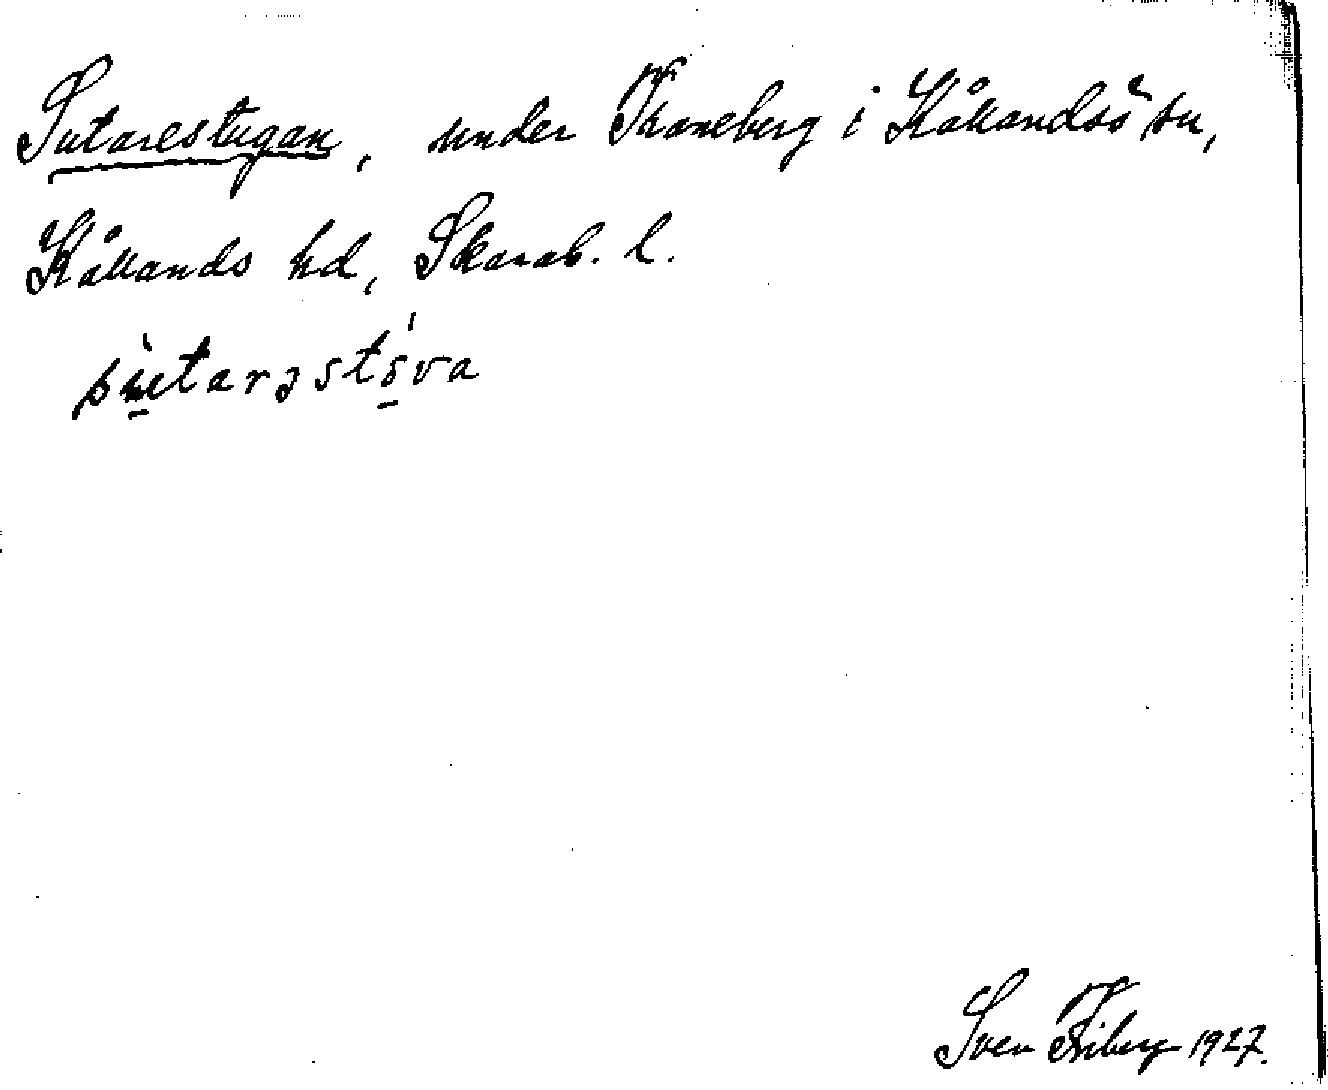 Sutarestugan, under Traneberg i Kållandsö sn,
Kållands hd, Skarab. l.
su̱̇̀tarəstö̱́va
Sven Friberg 1927.